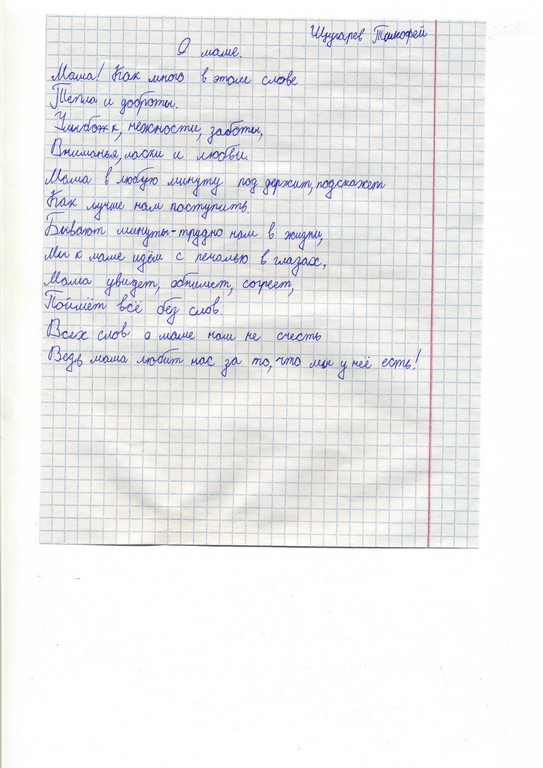 Щугарев Тимофей
О маме.
Мама! Как много в этом слове
Тепла и доброты.
Улыбок, нежности, заботы,
Вниманья, ласки и любви.
Мама в любую минуту под держит, подскажет
Как лучше нам поступить
Бывают минуты-трудно нам в жизни,
Мы к маме идём с печалью в глазах,
Мама увидет, обнимет, согреет,
Поймёт всё без слов.
Всех слов о маме нам не счесть
Ведь мама любит нас за то, что мы у неё есть!